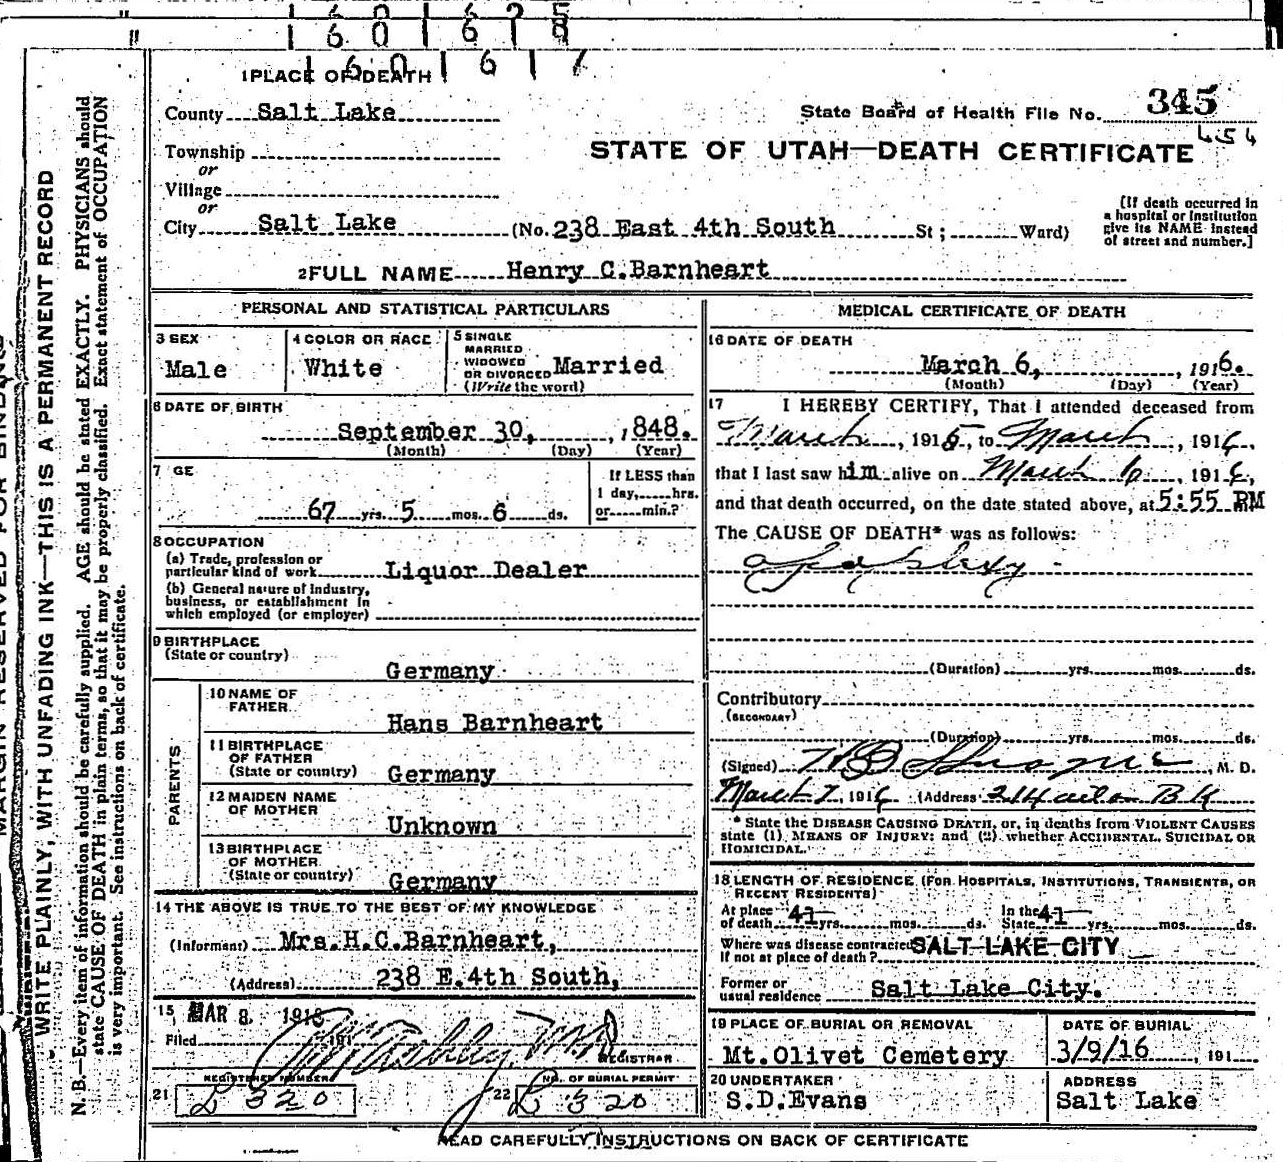 1 PLACE OF DEATH
County Salt Lake
State Board of Health File No. 345
454
Township
or
Village
or
STATE OF UTAH—DEATH CERTIFICATE
City Salt Lake (No. 238 East 4th South St; Ward)
[If death occurred in
a hospital or institution
give its NAME instead
of street and number.]
2 FULL NAME Henry C.Barnheart
PERSONAL AND STATISTICAL PARTICULARS
3 SEX
Male
4 COLOR OR RACE
White
5 SINGLE
MARRIED
WIDOWED
OR DIVORCED Married
(Write the word)
6 DATE OF BIRTH
September 30, , 1848.
(Month) (Day) (Year)
7 GE
67 yrs. 5 mos. 6 ds.
If LESS than
1 day, hrs.
or min.?
8 OCCUPATION
(a) Trade, profession or
particular kind of work Liquor Dealer
(b) General nature of industry,
business, or establishment in
which employed (or employer)
9 BIRTHPLACE
(State or country)
Germany
PARENTS
10 NAME OF
FATHER
Hans Barnheart
11 BIRTHPLACE
OF FATHER
(State or country) Germany
12 MAIDEN NAME
OF MOTHER
Unknown
13 BIRTHPLACE
OF MOTHER
(State or country) Germany
14 THE ABOVE IS TRUE TO THE BEST OF MY KNOWLEDGE
(Informant) Mrs.H.C.Barnheart,
(Address) 238 E.4th South,
15 MAR 8 191
Filed 191
REGISTRAR
REGISTERED NUMBER
21 L 320
NO. OF BURIAL PERMIT
22 L 320
MEDICAL CERTIFICATE OF DEATH
16 DATE OF DEATH
March 6, , 1916.
(Month) (Day) (Year)
17 I HEREBY CERTIFY, That I attended deceased from
March , 1915, to March , 1916,
that I last saw him alive on March 6 , 1916,
and that death occurred, on the date stated above, at 5:55 PM
The CAUSE OF DEATH* was as follows:
Apoplexy
(Duration) yrs. mos. ds.
Contributory
(SECONDARY)
(Duration) yrs. mos. ds.
(Signed) , M. D.
March 7, 1916 (Address
* State the DISEASE CAUSING DEATH, or, in deaths from VIOLENT CAUSES
state (1) MEANS OF INJURY; and (2) whether ACCIDENTAL, SUICIDAL OR
HOMICIDAL.
18 LENGTH OF RESIDENCE (FOR HOSPITALS, INSTITUTIONS, TRANSIENTS, OR
RECENT RESIDENTS)
At place In the
of death 41 yrs. mos. ds. State 41 yrs. mos. ds.
Where was disease contracted SALT LAKE CITY
If not at place of death?
Former or
usual residence Salt Lake City.
19 PLACE OF BURIAL OR REMOVAL
Mt.Olivet Cemetery
DATE OF BURIAL
3/9/16 , 191
20 UNDERTAKER
S.D.Evans
ADDRESS
Salt Lake
READ CAREFULLY INSTRUCTIONS ON BACK OF CERTIFICATE
MARGIN RESERVED FOR BINDING
WRITE PLAINLY, WITH UNFADING INK—THIS IS A PERMANENT RECORD
N. B.—Every item of information should be carefully supplied. AGE should be stated EXACTLY. PHYSICIANS should
state CAUSE OF DEATH in plain terms, so that it may be properly classified. Exact statement of OCCUPATION
is very important. See instructions on back of certificate.